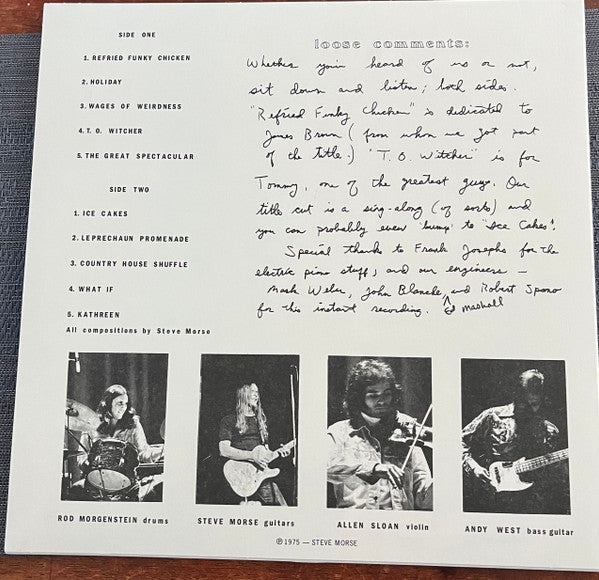 SIDE ONE
1. REFRIED FUNKY CHICKEN
2. HOLIDAY
3. WAGES OF WEIRDNESS
4. T. O. WITCHER
5. THE GREAT SPECTACULAR
SIDE TWO
1. ICE CAKES
2. LEPRECHAUN PROMENADE
3. COUNTRY HOUSE SHUFFLE
4. WHAT IF
5. KATHREEN
All compositions by Steve Morse
loose comments:
Whether you've heard of us or not,
sit down and listen; both sides.
"Refried Funky Chicken" is dedicated to
James Brown (from whom we got part
of the title.) "T. O. Witcher" is for
Tommy, one of the greatest guys. Our
title cut is a sing-along (of sorts) and
you can probably even 'bump' to "Ice Cakes".
Special thanks to Frank Josephs for the
electric piano stuff, and our engineers —
Mark Weber, John Blanche, and Robert Spano
for this instant recording. Ed Mashall
ROD MORGENSTEIN drums
STEVE MORSE guitars
ALLEN SLOAN violin
ANDY WEST bass guitar
℗ 1975 — STEVE MORSE